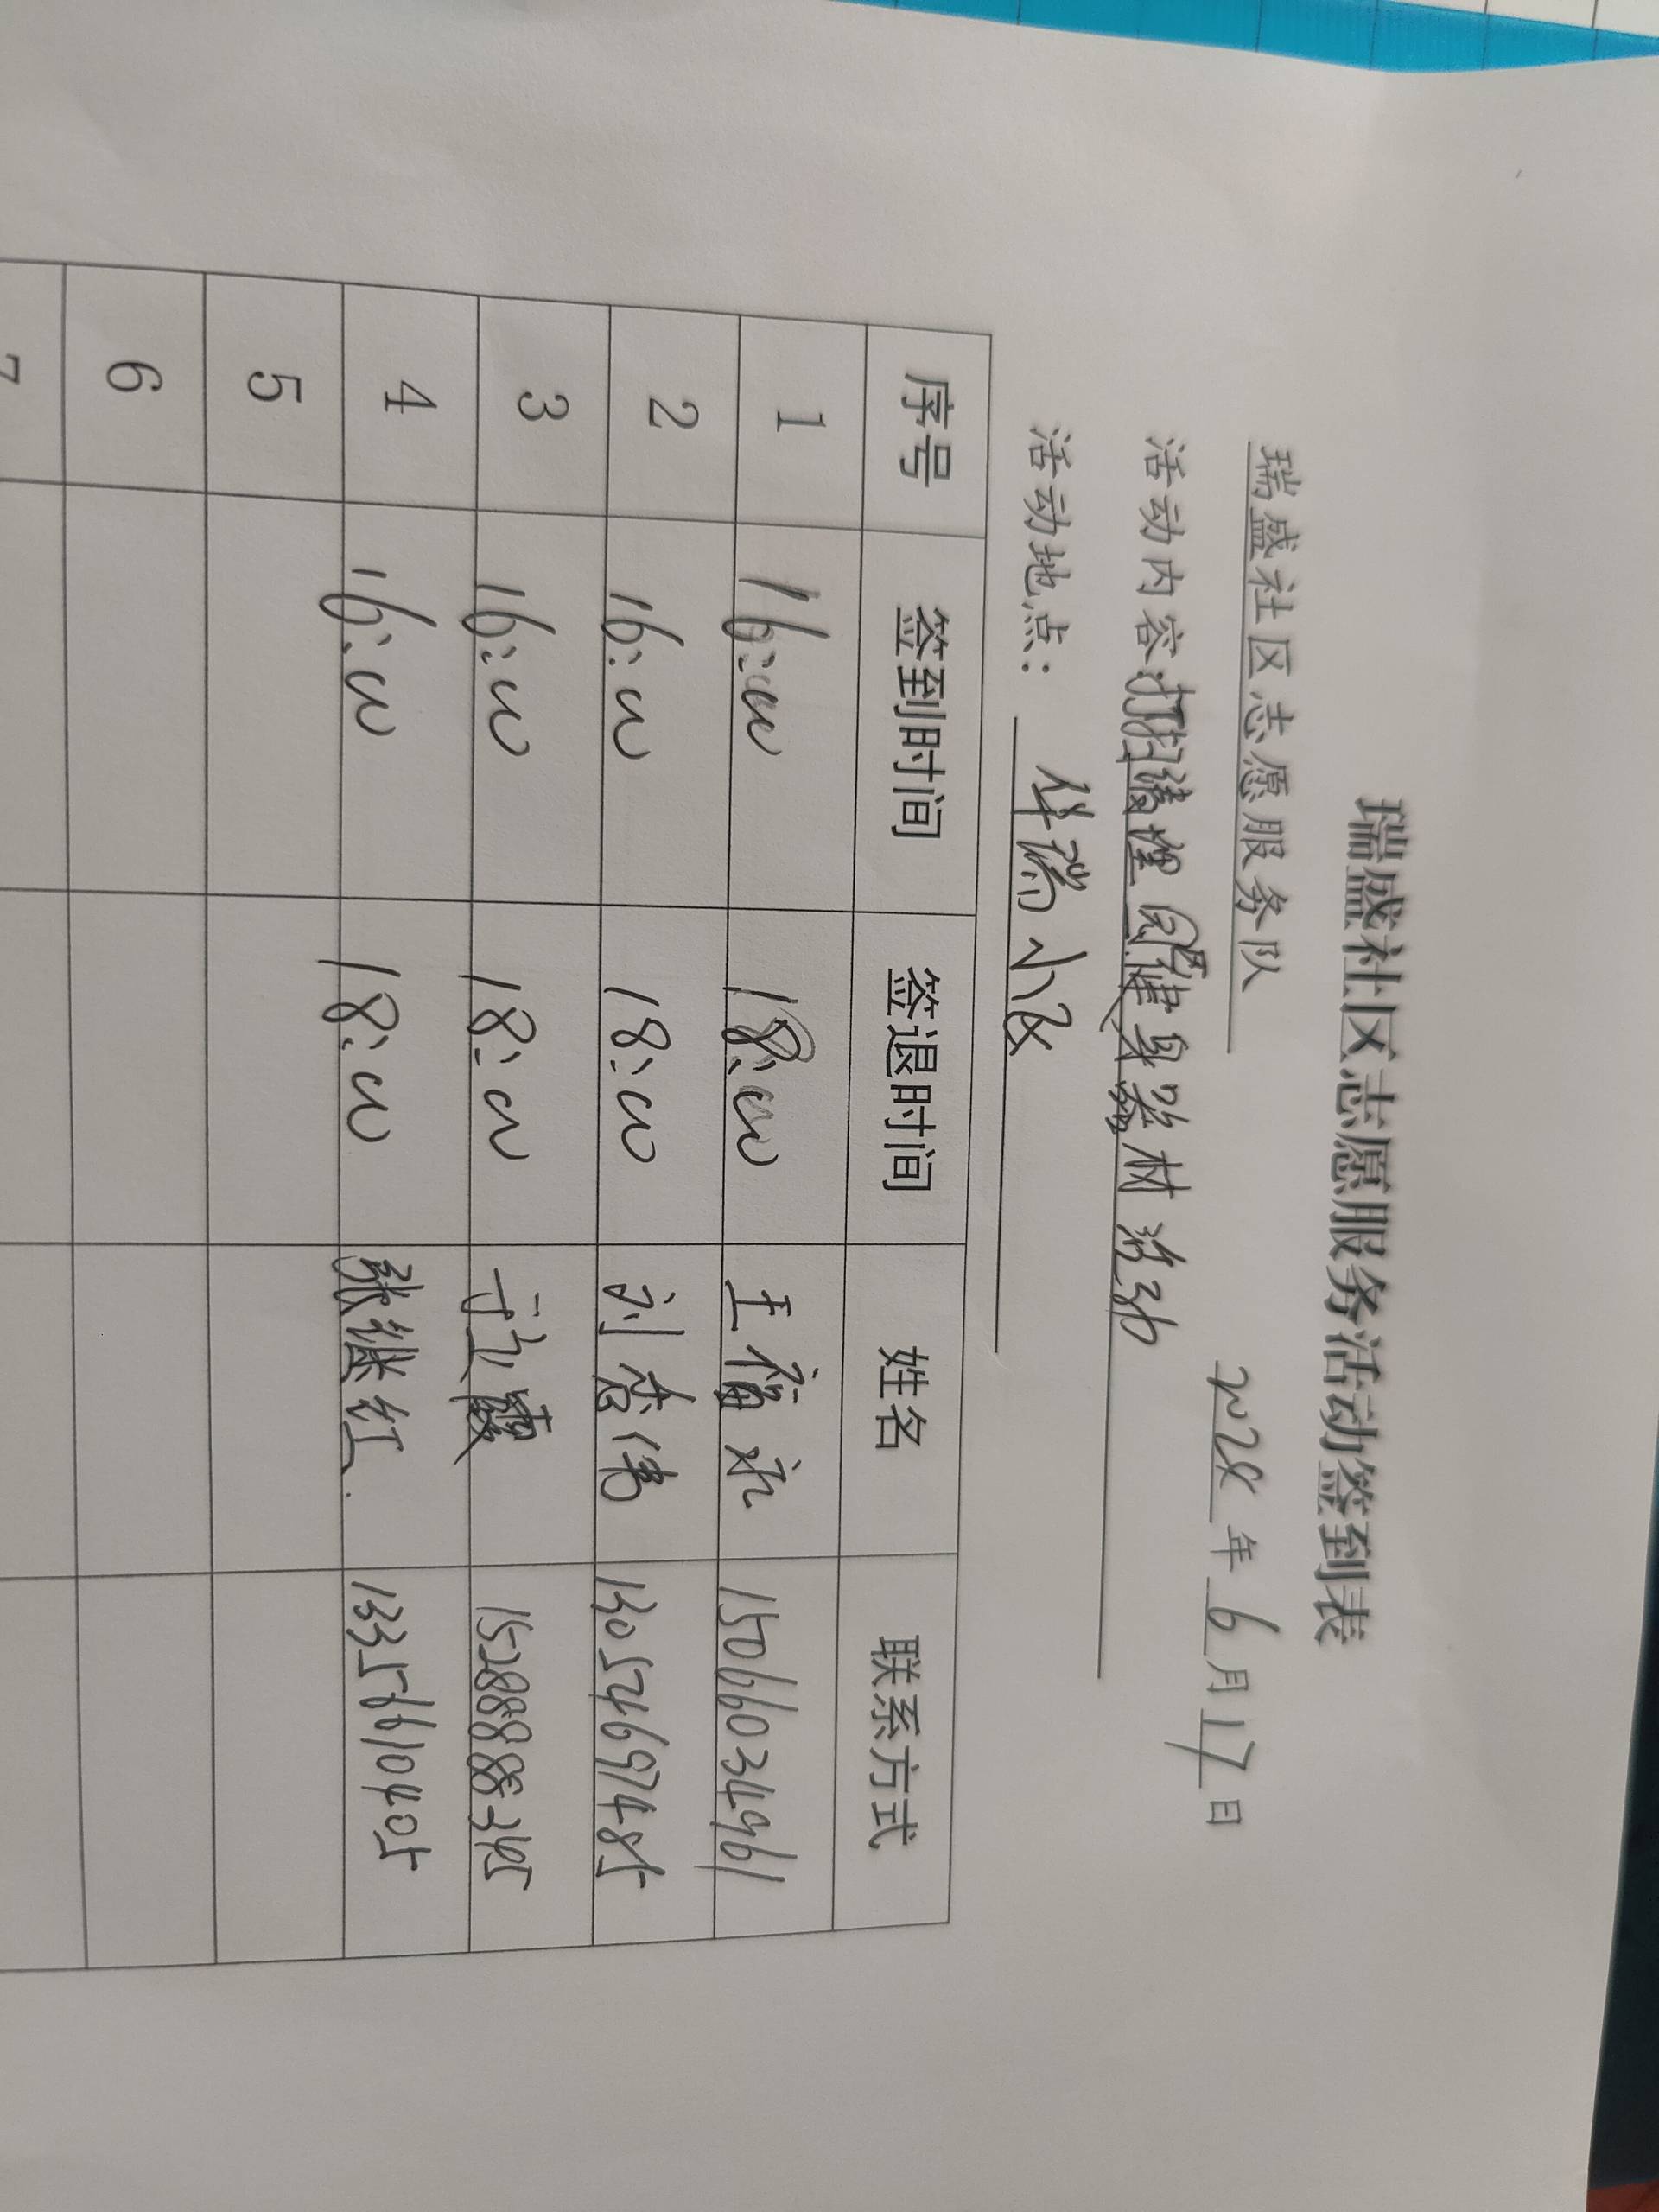 瑞盛社区志愿服务活动签到表
瑞盛社区志愿服务队 2024年6月17日
活动内容:打扫清理 健身器材活动
活动地点: 华瑞小区
序号 签到时间 签退时间 姓名 联系方式
1 16:00 18:00 王福永 15066034961
2 16:00 18:00 刘志伟 13054697485
3 16:00 18:00 15288888345
4 16:00 18:00 张继红 13356610405
5
6
7